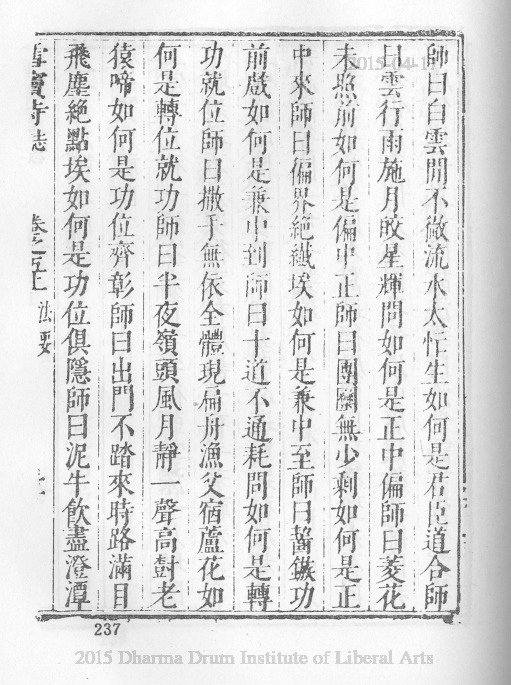 師曰白雲閒不徹流水太忙生如何是君臣道合師
曰雲行雨施月皎星輝問如何是正中偏師曰菱花
未照前如何是偏中正師曰團圞無少剩如何是正
中來師曰徧界絕纖埃如何是兼中至師曰齧鏃功
前戲如何是兼中到師曰十道不通耗問如何是轉
功就位師曰撒手無依全體現扁舟漁父宿蘆花如
何是轉位就功師曰半夜嶺頭風月靜一聲高對老
猿啼如何是功位齊彰師曰出門不踏來時路滿目
飛塵絕點埃如何是功位俱隱師曰泥牛飲盡澄潭
雪竇寺誌 卷之五上 法要
237
2015-04-1
2015 Dharma Drum Institute of Liberal Arts